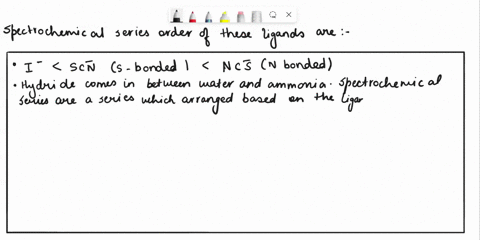 Spectrochemical series order of these ligands are :-
• I⁻ < SCN̄ (S-bonded) < NCS̄ (N bonded)
• Hydride comes in between water and ammonia. Spectrochemical
series are a series which arranged based on the ligar